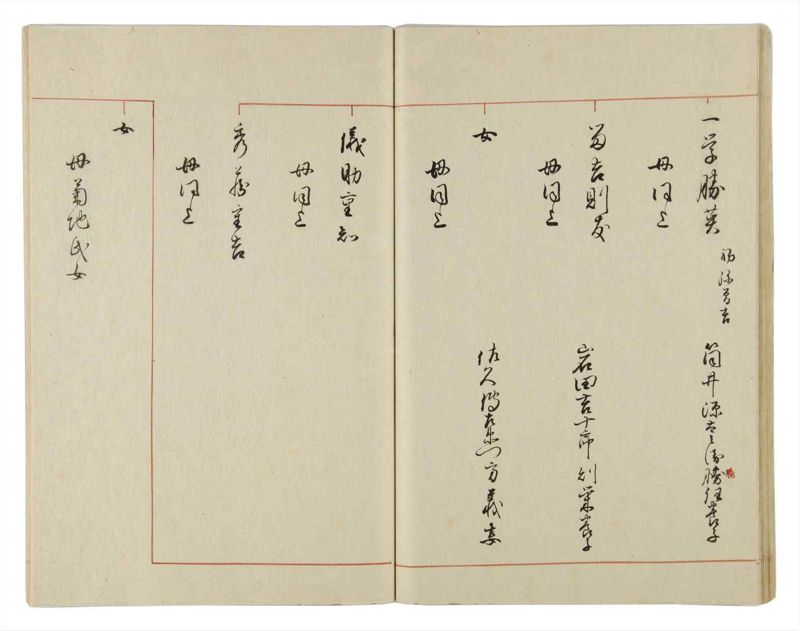 一学勝英
初弥三吉
筒井源左衛勝従養子
母同上
留吉則友
岩田吉十郎則業養子
母同上
女
佐久間左衛門方義妻
母同上
儀助重知
母同上
秀蔵重吉
母同上
女
母菊地氏女